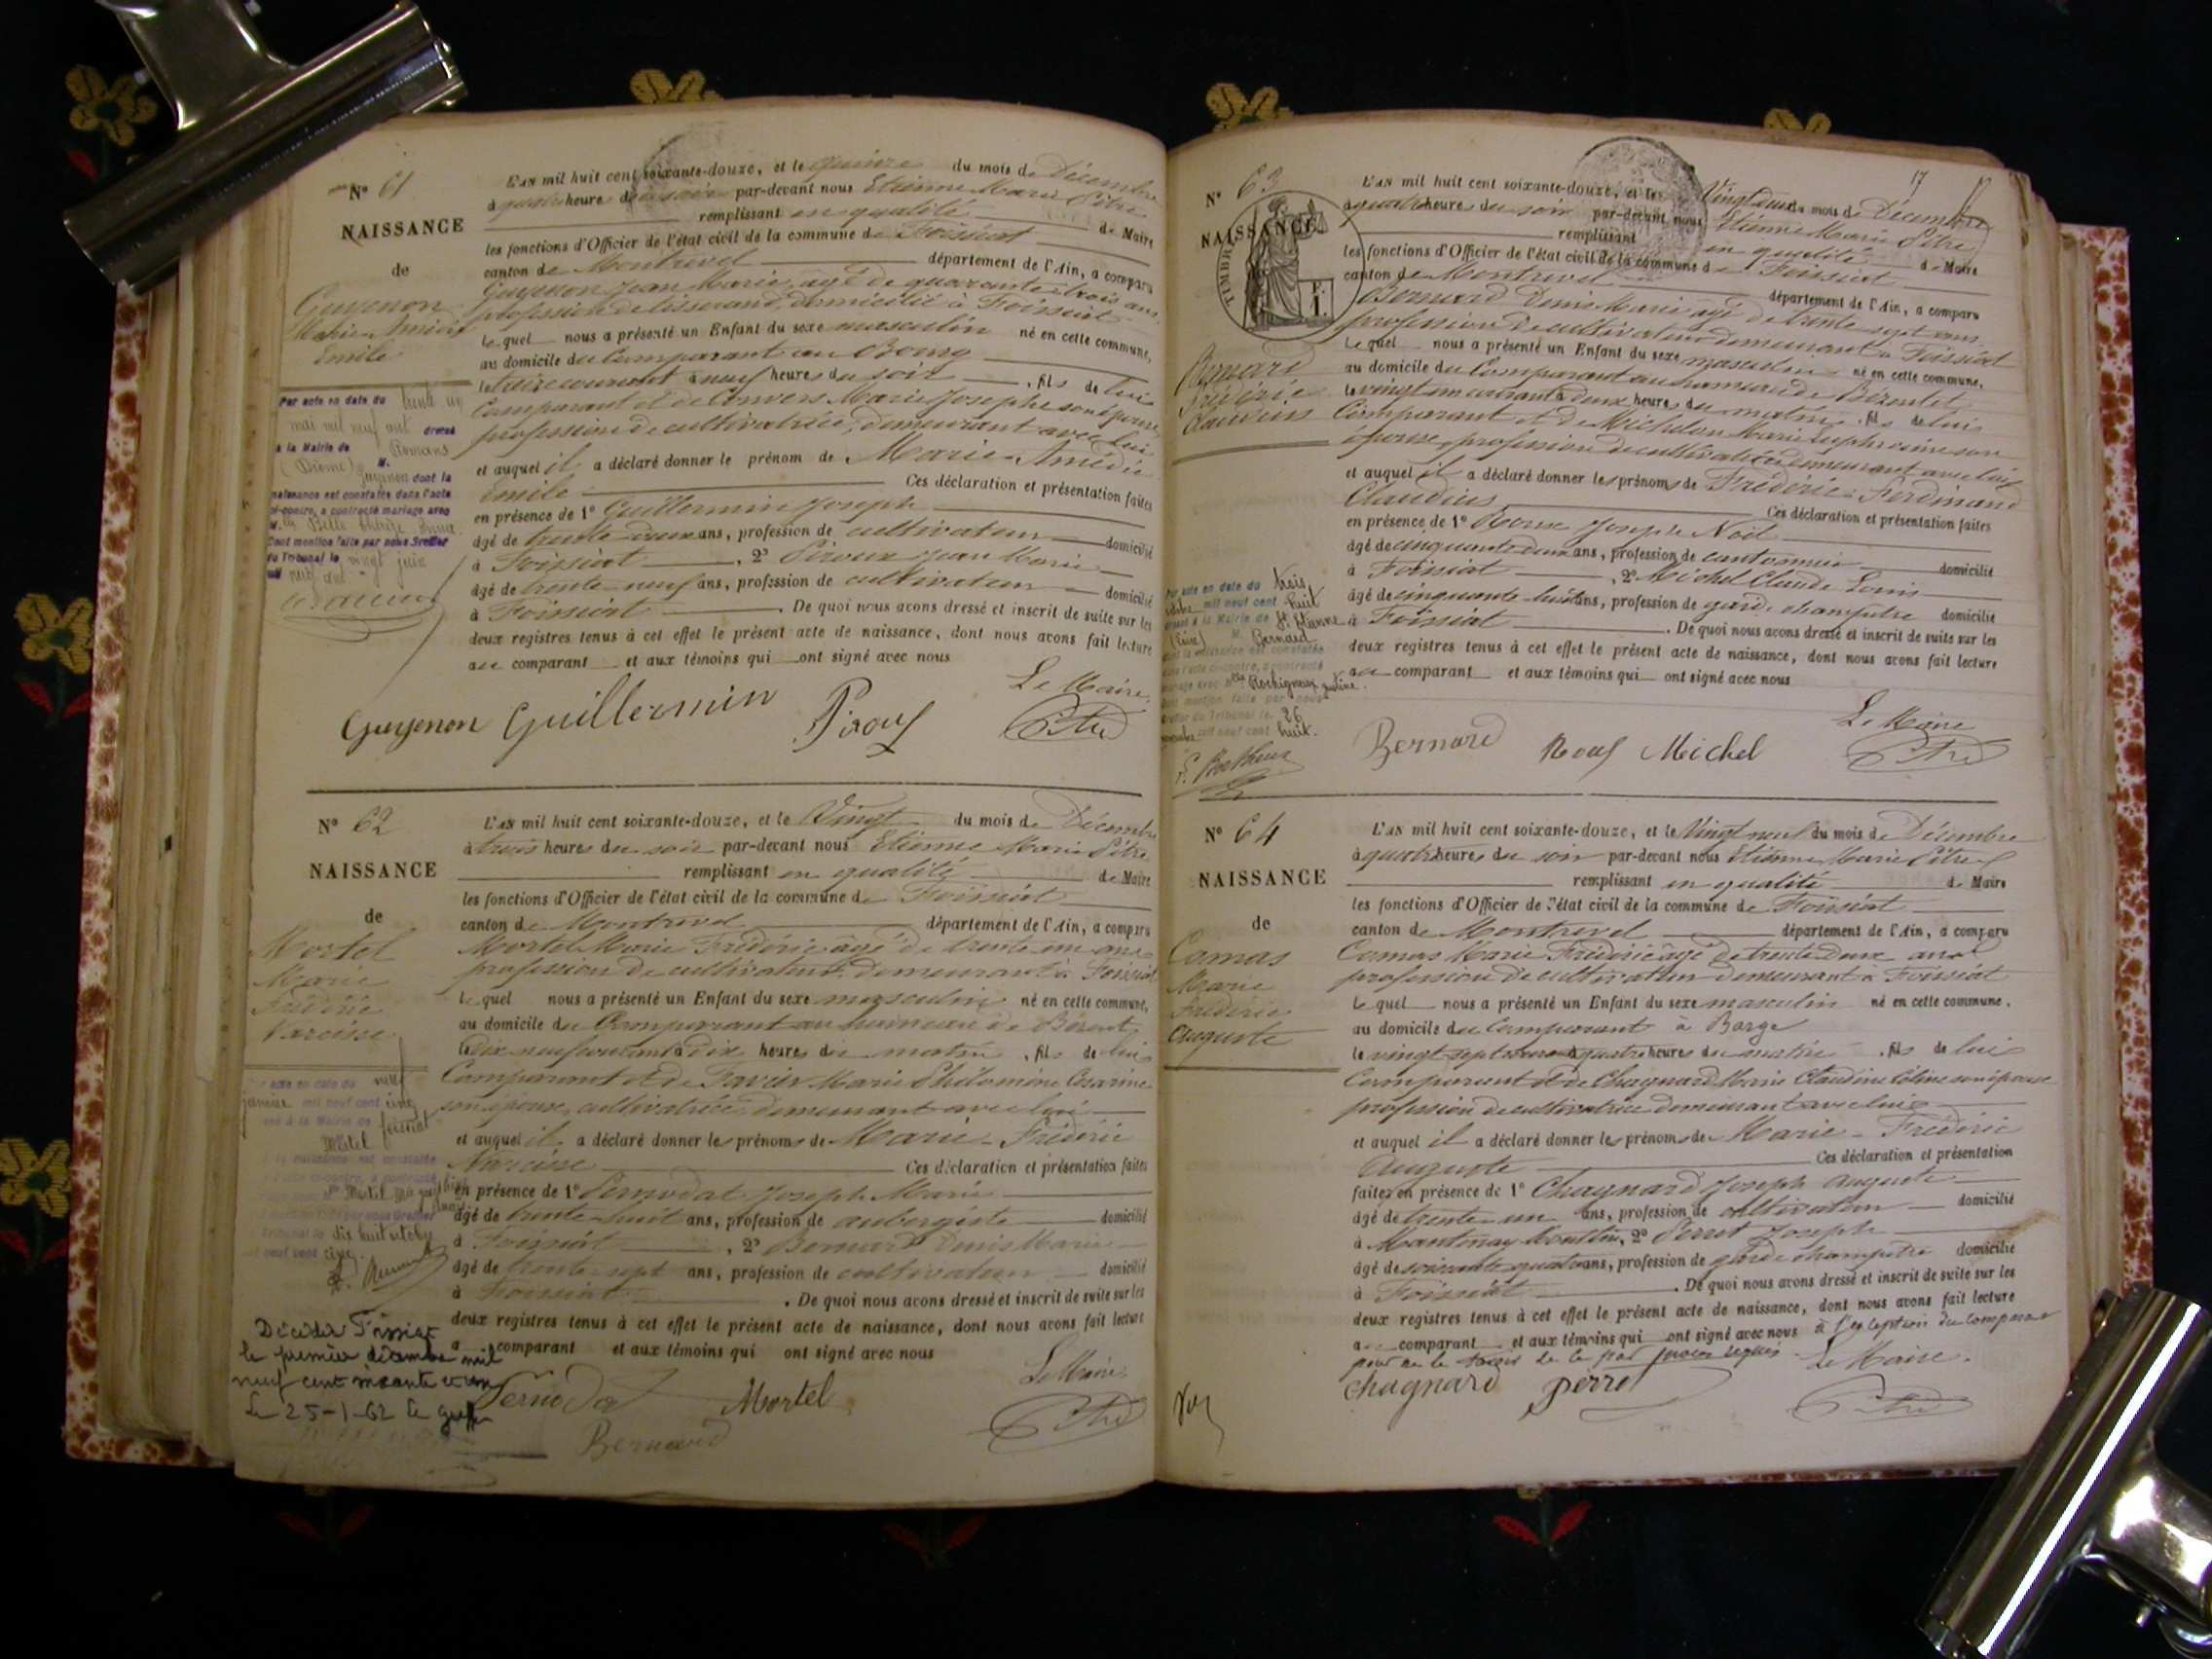 N° 61
NAISSANCE
de
Guyenon
Marie Amédée
Emile
L'AN mil huit cent soixante-douze, et le quinze du mois de Décembre
à quatre heures du soir par-devant nous Etienne Marie Pitre
remplissant en qualité de Maire
les fonctions d'Officier de l'état civil de la commune de Foissiat
canton de Montrevel département de l'Ain, a comparu
Guyenon Jean Marie, âgé de quarante trois ans,
profession de tisserand, domicilié à Foissiat
Lequel nous a présenté un Enfant du sexe masculin né en cette commune,
au domicile du Comparant au Bourg
le treize courant à neuf heures du soir, fils de lui
Comparant et de Convers Marie Josephe son épouse,
profession de cultivatrice, demeurant avec lui
et auquel il a déclaré donner le prénom de Marie-Amédée
Emile Ces déclaration et présentation faites
en présence de 1° Guillermin Joseph
âgé de trente-deux ans, profession de cultivateur domicilié
à Foissiat, 2° Piroux Jean Marie
âgé de trente-neuf ans, profession de cultivateur domicilié
à Foissiat. De quoi nous avons dressé et inscrit de suite sur les
deux registres tenus à cet effet le présent acte de naissance, dont nous avons fait lecture
au comparant et aux témoins qui ont signé avec nous
Le Maire,
Guyenon Guillermin Piroux Pitre
Par acte en date du trente un
mai mil neuf cent dressé
à la Mairie de Romans
(Drôme) M.
Guyenon dont la
naissance est constatée dans l'acte
ci-contre, a contracté mariage avec
Dont mention faite par nous Greffier
du Tribunal le vingt juin
N° 62
NAISSANCE
de
Mortel
Marie
Frédéric
Narcisse
L'AN mil huit cent soixante-douze, et le Vingt du mois de Décembre
à trois heures du soir par-devant nous Etienne Marie Pitre
remplissant en qualité de Maire
les fonctions d'Officier de l'état civil de la commune de Foissiat
canton de Montrevel département de l'Ain, a comparu
Mortel Marie Frédéric âgé de trente un ans
profession de cultivateur demeurant à Foissiat
Lequel nous a présenté un Enfant du sexe masculin né en cette commune,
au domicile du Comparant au hameau de Bézentet
le Dix neuf courant à Dix heures du matin, fils de lui
Comparant et de Favier Marie Philomène Césarine
son épouse, cultivatrice, demeurant avec lui
et auquel il a déclaré donner les prénoms de Marie-Frédéric
Narcisse Ces déclaration et présentation faites
en présence de 1° Pernodat Joseph Marie
âgé de trente-huit ans, profession de aubergiste domicilié
à Foissiat, 2° Bernard Denis Marie
âgé de trente-sept ans, profession de cultivateur domicilié
à Foissiat. De quoi nous avons dressé et inscrit de suite sur les
deux registres tenus à cet effet le présent acte de naissance, dont nous avons fait lecture
a comparant et aux témoins qui ont signé avec nous
Le Maire
Pernodat Mortel
Bernard Pitre
acte en date du neuf
janvier mil neuf cent cinq
à la Mairie de Foissiat
Mortel
dix huit
neuf cent cinq.
Décédé à Foissiat
le premier décembre mil
neuf cent soixante et un
Le 25-1-62 le greffier
17
N° 63
NAISSANCE
TIMBRE
Bernard
Frédéric
Claudius
L'AN mil huit cent soixante-douze, et le Vingt deux du mois de Décembre
à quatre heures du soir par-devant nous Etienne Marie Pitre
remplissant en qualité de Maire
les fonctions d'Officier de l'état civil de la commune de Foissiat
canton de Montrevel département de l'Ain, a comparu
Bernard Denis Marie âgé de trente sept ans
profession de cultivateur demeurant à Foissiat
Lequel nous a présenté un Enfant du sexe masculin né en cette commune,
au domicile du Comparant au hameau de Bézentet
le vingt un courant à deux heures du matin, fils de lui
Comparant et de Michelon Marie Euphrosine son
épouse, profession de cultivatrice demeurant avec lui
et auquel il a déclaré donner les prénoms de Frédéric-Ferdinand
Claudius Ces déclaration et présentation faites
en présence de 1° Roux Joseph Noël
âgé de cinquante deux ans, profession de cantonnier domicilié
à Foissiat, 2° Michel Claude Louis
âgé de cinquante-huit ans, profession de garde champêtre domicilié
à Foissiat. De quoi nous avons dressé et inscrit de suite sur les
deux registres tenus à cet effet le présent acte de naissance, dont nous avons fait lecture
au comparant et aux témoins qui ont signé avec nous
Le Maire
Bernard Roux Michel Pitre
Par acte en date du trois
octobre mil neuf cent huit
dressé à la Mairie de St Etienne
(Loire) M. Bernard
dont la naissance est constatée
dans l'acte ci-contre, a contracté
mariage avec Mlle Rochigneux Justine.
Dont mention faite par nous
Greffier du Tribunal le 26
novembre mil neuf cent huit.
N° 64
NAISSANCE
de
Camas
Marie
Frédéric
Auguste
L'AN mil huit cent soixante-douze, et le Vingt neuf du mois de Décembre
à quatre heures du soir par-devant nous Etienne Marie Pitre
remplissant en qualité de Maire
les fonctions d'Officier de l'état civil de la commune de Foissiat
canton de Montrevel département de l'Ain, a comparu
Camas Marie Frédéric âgé de trente Deux ans
profession de cultivateur demeurant à Foissiat
Lequel nous a présenté un Enfant du sexe masculin né en cette commune,
au domicile du Comparant à Barge
le vingt sept courant à quatre heures du matin, fils de lui
Comparant et de Chagnard Marie Claudine Céline son épouse
profession de cultivatrice demeurant avec lui
et auquel il a déclaré donner les prénoms de Marie-Frédéric
Auguste Ces déclaration et présentation
faites en présence de 1° Chagnard Joseph Auguste
âgé de trente-un ans, profession de cultivateur domicilié
à Mantenay Montlin, 2° Perret Joseph
âgé de soixante quatre ans, profession de garde champêtre domicilié
à Foissiat. De quoi nous avons dressé et inscrit de suite sur les
deux registres tenus à cet effet le présent acte de naissance, dont nous avons fait lecture
au comparant et aux témoins qui ont signé avec nous à l'exception du comparant
pour ne le savoir de ce requis Le Maire.
Chagnard Perret Pitre